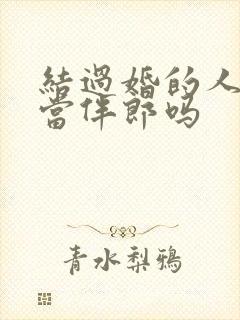 結過婚的人
當伴郎嗎
青水梨鴉